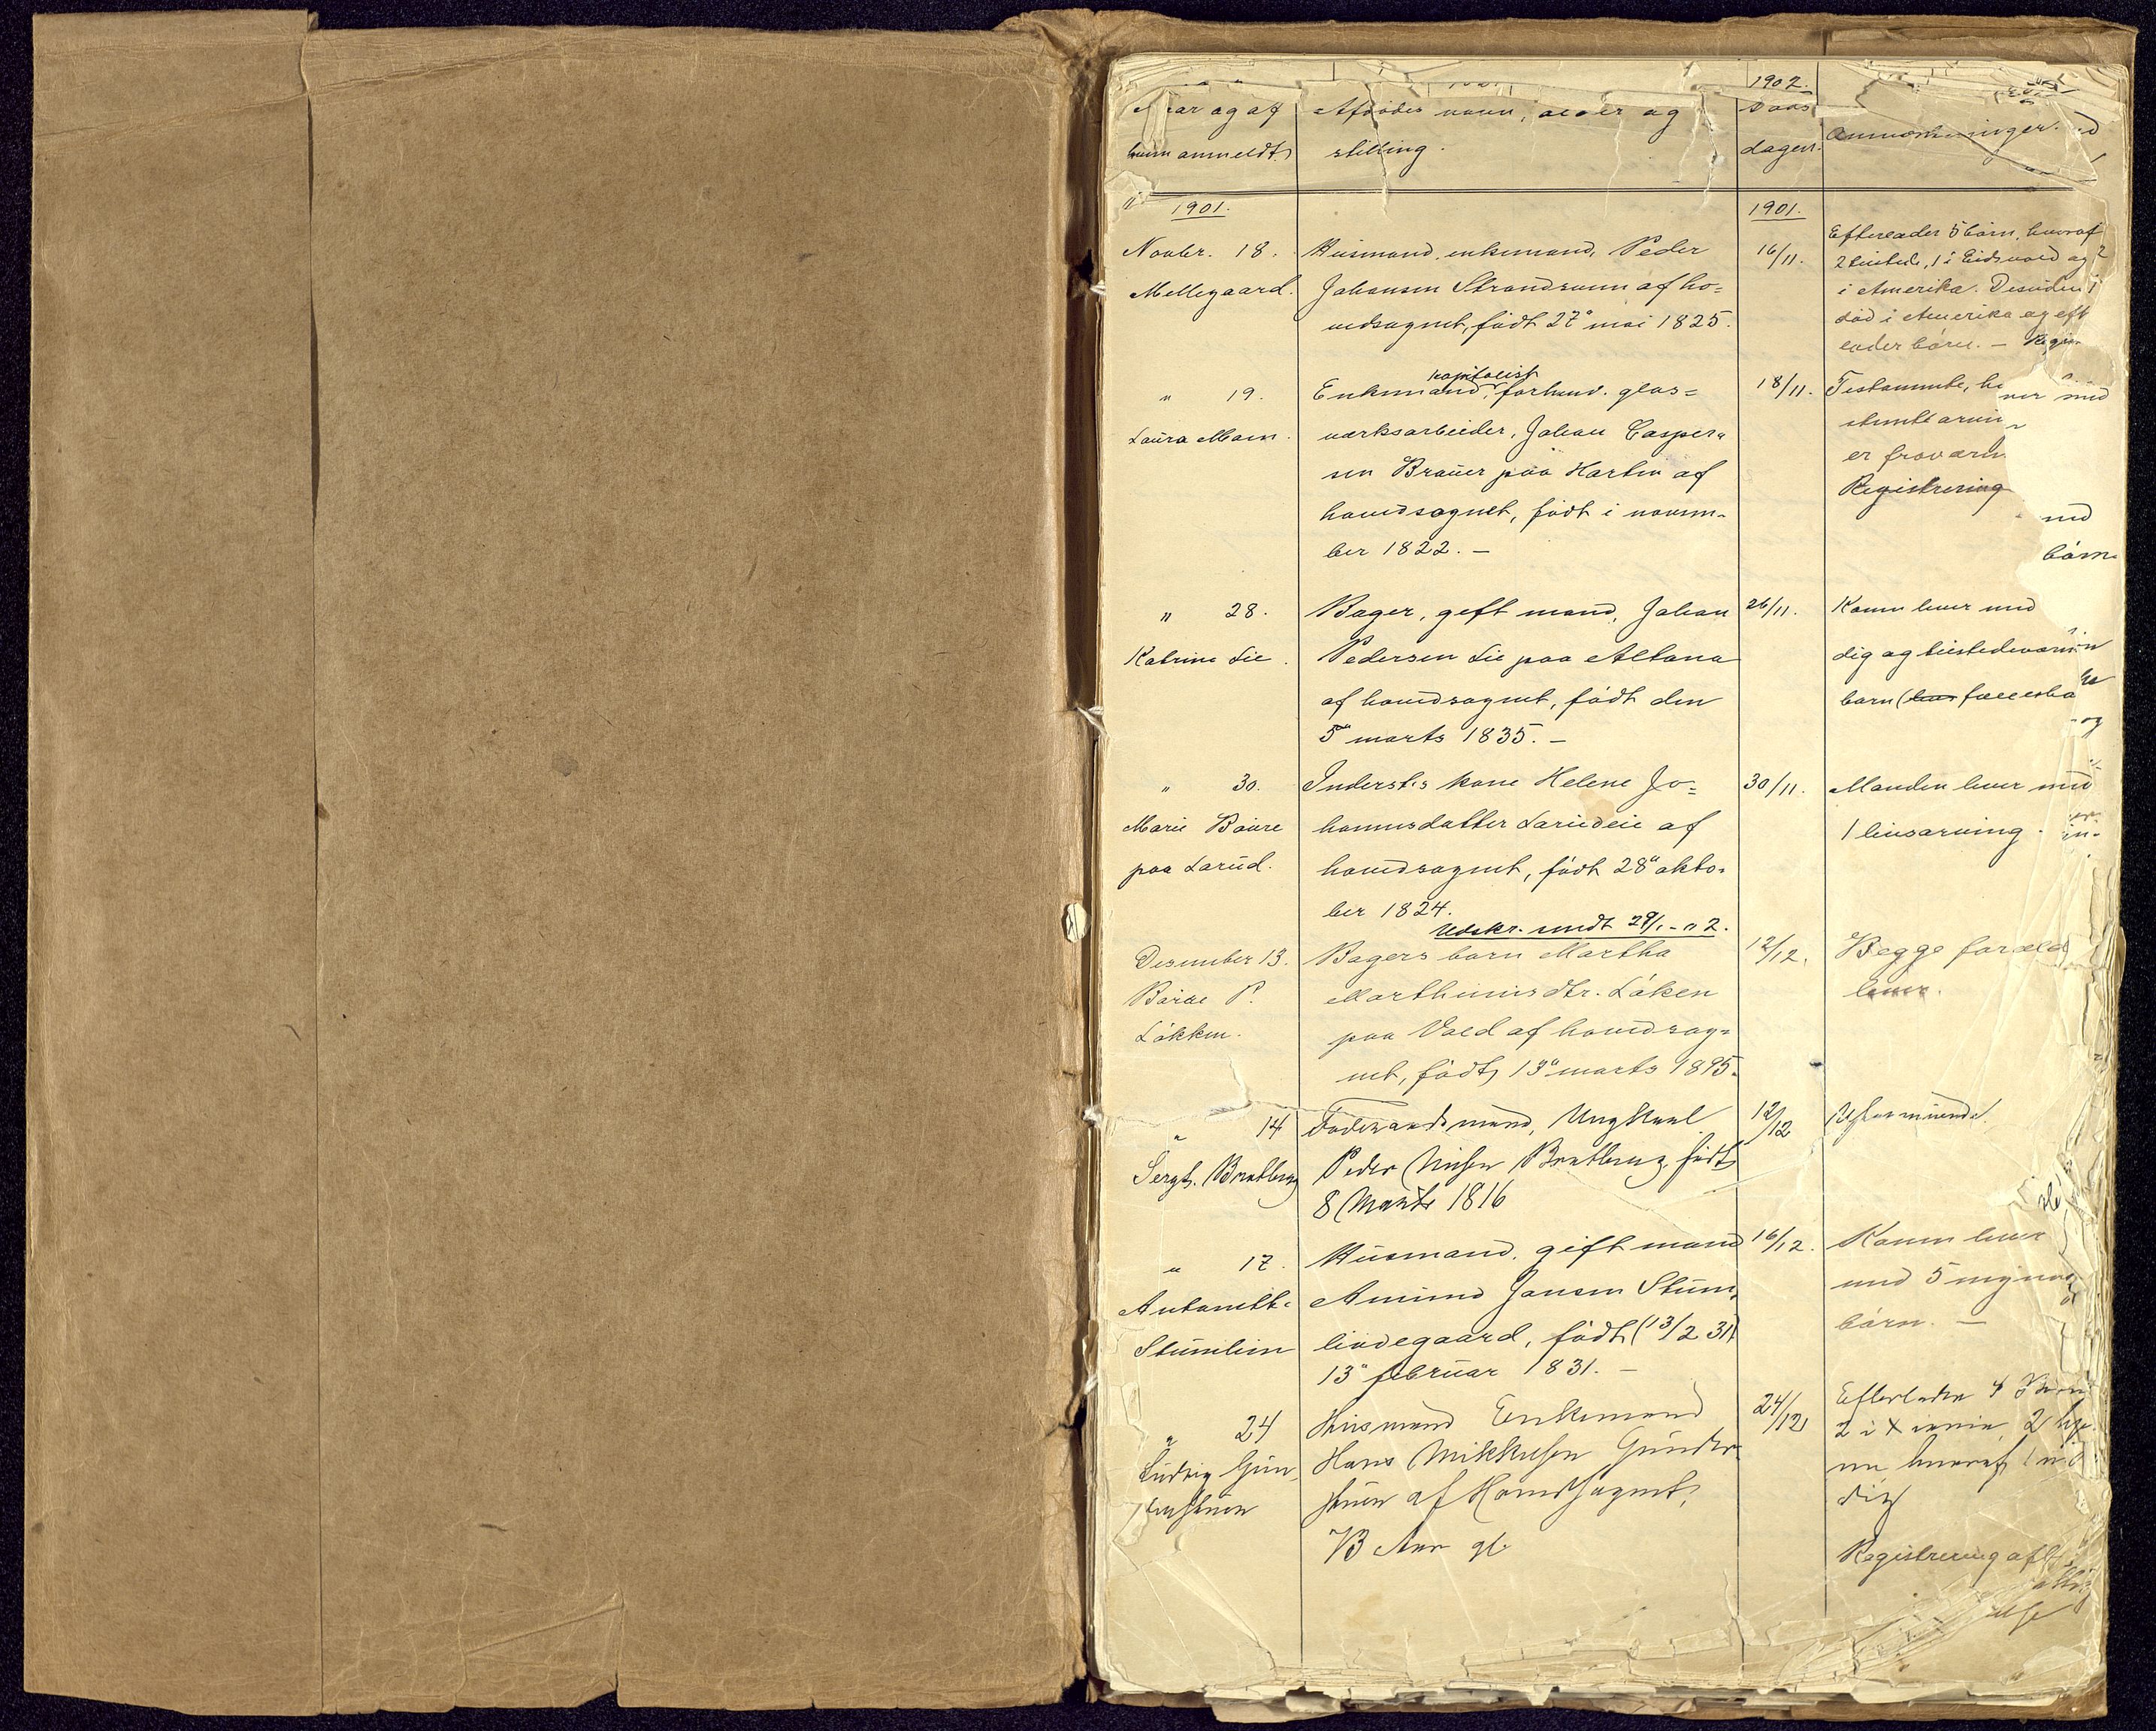 1902.
og af
hvem anmeldt
Afdødes navn, alder og
stilling.
Døds
dagen.
Anmærkninger.
1901.
1901.
Novbr. 18.
Mellegaard.
Husmand, enkemand, Peder
Johansen Strandsunn af ho=
vedsognet, født 27" mai 1825.
16/11.
Efterlader 5 børn, hvoraf
2 tilstede, 1 i Eidsvold og 2
i Amerika. Desuden 1
død i Amerika og eft
lader børn. —
" 19.
Laura Moen.
kapitalist
Enkemand, forhenv. glas=
værksarbeider, Johan Casper=
sen Brauer paa Harten af
hovedsognet, født i novem=
ber 1822. —
18/11.
Testamente,
Registrering
" 28.
Katrine Lie.
Bager, gift mand, Johan
Pedersen Lie paa Altona
af hovedsognet, født den
5" marts 1835. —
26/11.
Konen lever med
dig og tilstedevær
barn (
" 30.
Marie Baure
paa Larud.
Inderst.s kone Helene Jo=
hannesdatter Larudeie af
hovedsognet, født 28" okto=
ber 1824.
30/11.
Manden lever med
1 livsarving.
Udskr. sendt 29/1-02.
Desember 13.
Børre P.
Løkken.
Bagers barn Martha
Marthinusdtr. Løken
paa Vold af hovedsog=
net, født 13" marts 1895.
12/12.
Begge foræld
lever.
" 14
Sergt. Bratberg
Foderaadsmand, Ungkarl
Peder Nilsen Bratberg, født
8 Marts 1816
12/12
Uformuende.
" 17.
Antonette
Stümlien
Husmand, gift mand
Amund Jansen Stüm=
liodegaard, født (13/2 31)
13" februar 1831. —
16/12.
Konen lever
med 5 myndig
børn. —
" 24
Ludvig Gün
Husmand Enkemand
Hans Mikkelsen Gunder
stuen af Hovedsognet,
73 Aar gl.
24/12
Efterlader 4 Børn
2 i Xiania, 2 hje
me hvoraf 1
dig
Registrering afh